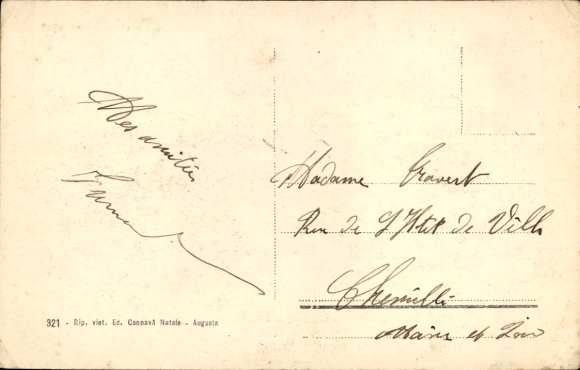 Mes amitiés
Madame Travert
Rue de l'Hôtel de Ville
Chemillé
Maine et Loire
321 - Rip. viet. Ed. Cannavà Natale - Augusta